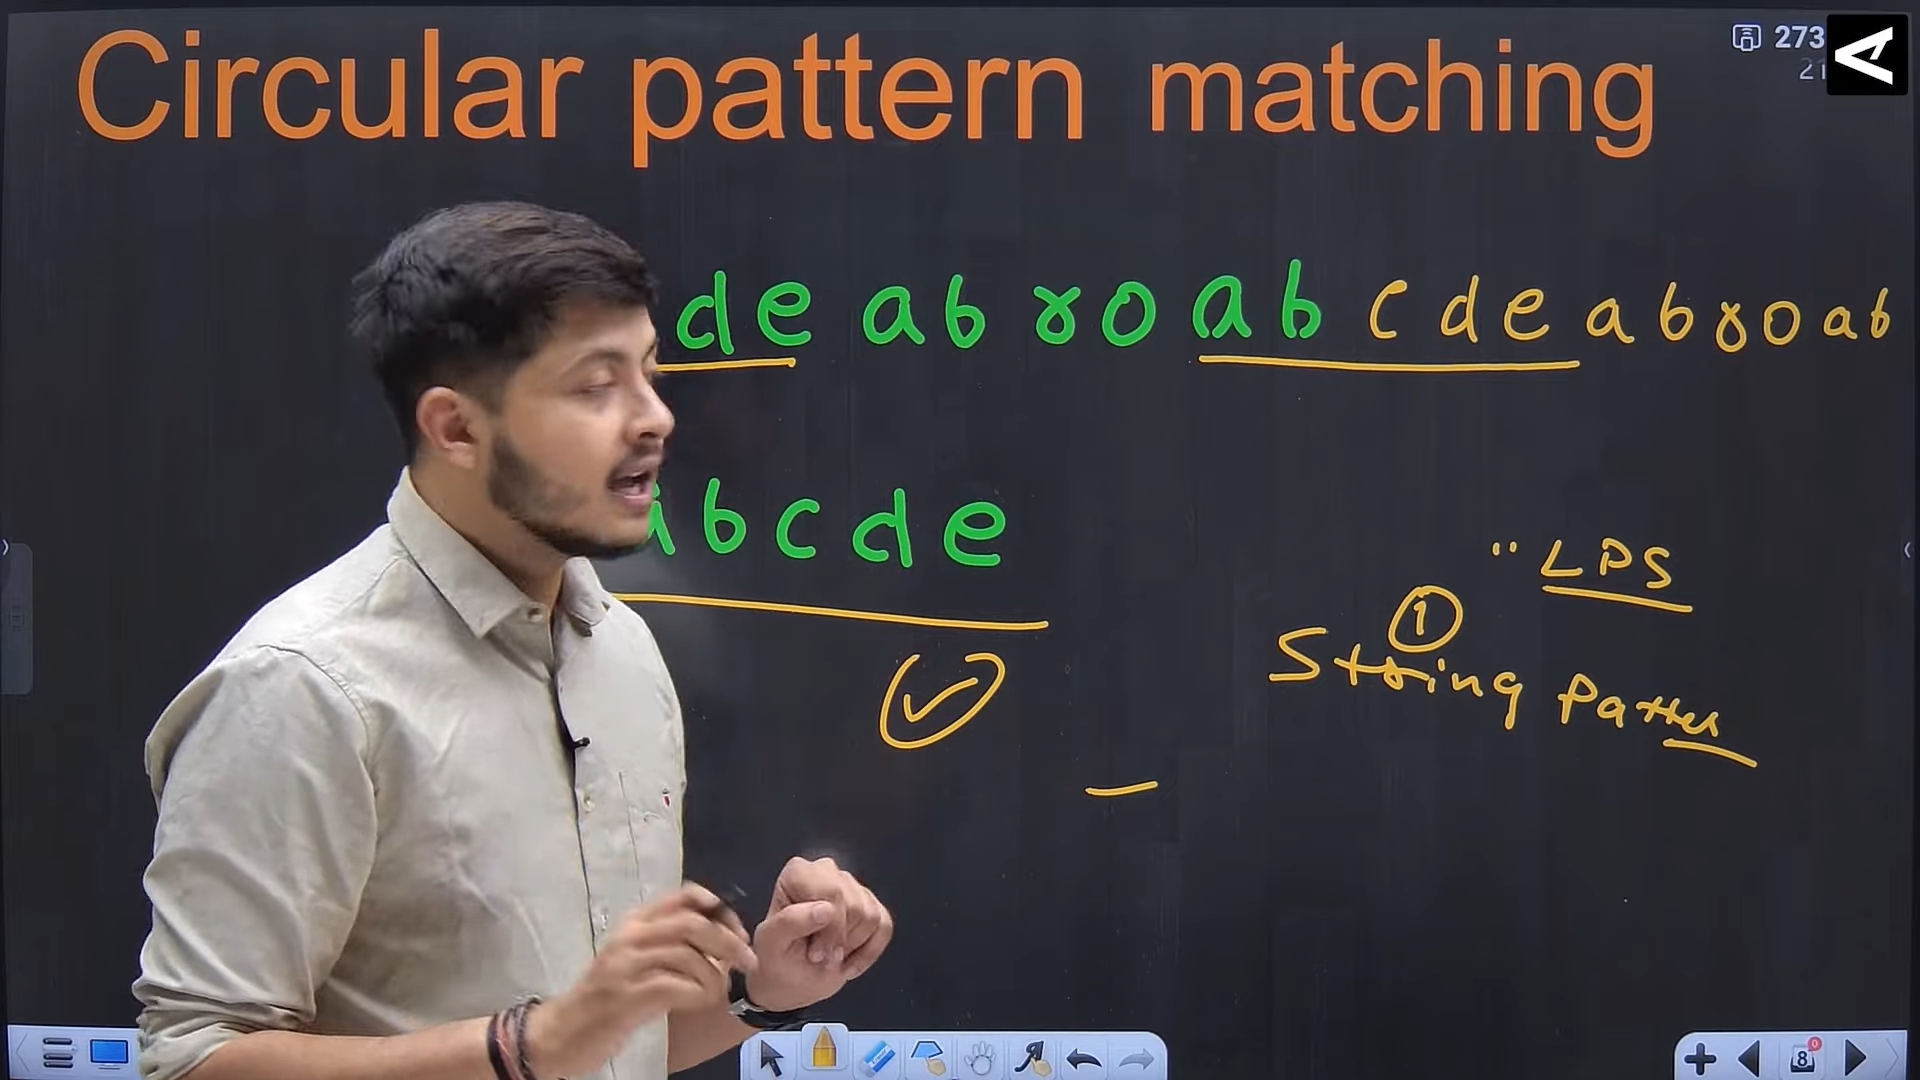 Circular pattern matching
273
21
d e a b r o a b c d e a b r o a b
a b c d e
" LPS
1
String Patter
8
0